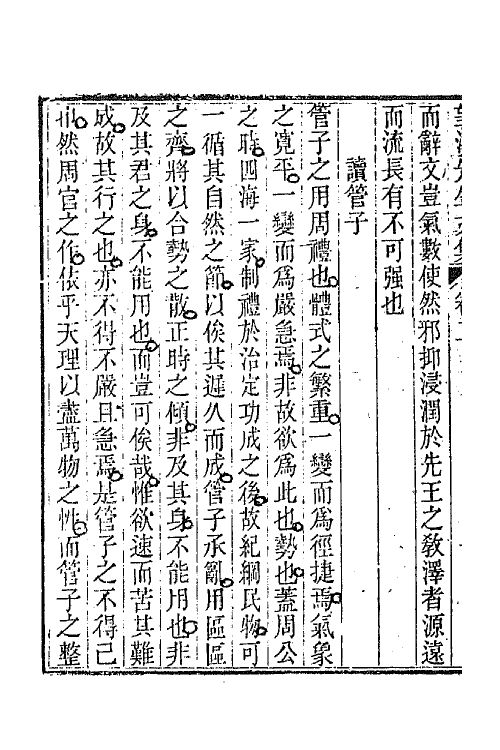 而辭文豈氣數使然邪抑浸潤於先王之敎澤者源遠
而流長有不可强也
讀管子
管子之用周禮也體式之繁重一變而爲徑捷焉氣象
之寬平一變而爲嚴急焉非故欲爲此也勢也蓋周公
之時四海一家制禮於治定功成之後故紀綱民物可
一循其自然之節以俟其遲久而成管子承亂用區區
之齊將以合勢之散正時之傾非及其身不能用也非
及其君之身不能用也而豈可俟哉惟欲速而苦其難
成故其行之也亦不得不嚴且急焉是管子之不得已
也然周官之作依乎天理以盡萬物之性而管子之整